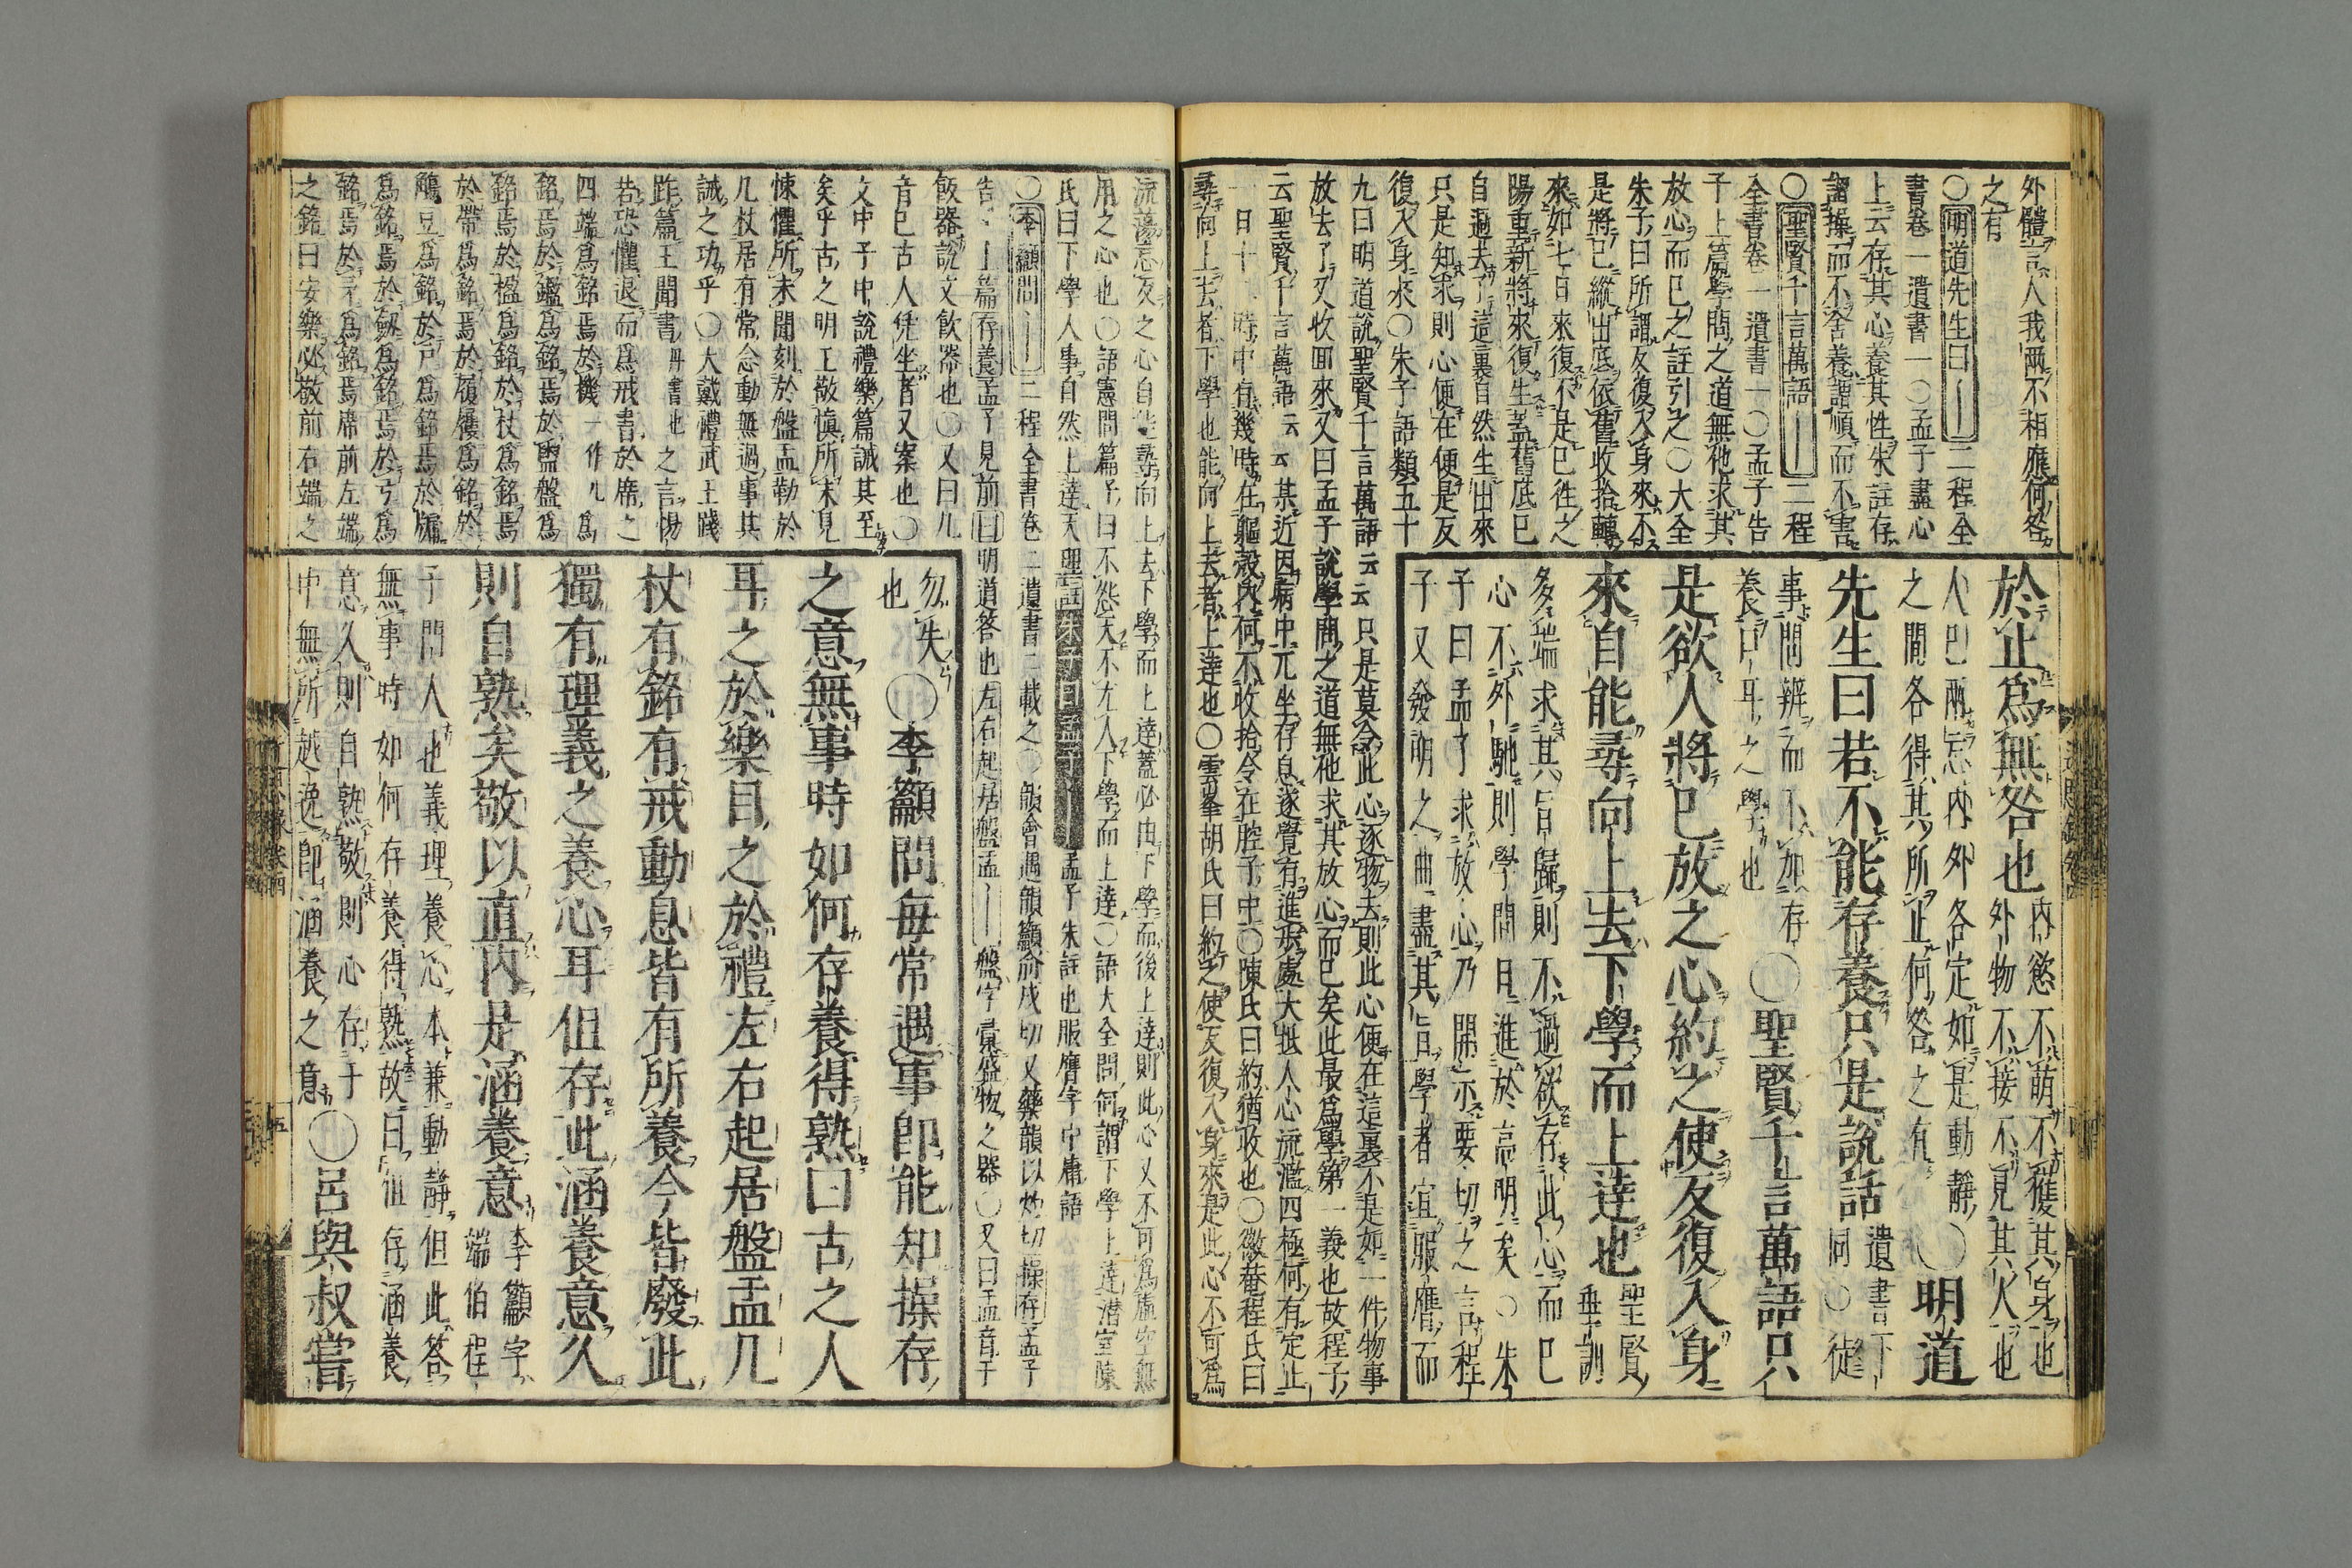 外體言人我兩不相應何咎
之有
○明道先生曰｜二程全
書卷一遺書一○孟子盡心
上云存其心養其性朱註存
謂操而不舍養謂順而不害
○聖賢千言萬語｜二程
全書卷一遺書一○孟子告
子上篇學問之道無他求其
放心而已之註引之○大全
朱子曰所謂反復入身來不
是將已縱出底依舊收拾轉
來如七日來復不是已往之
陽重新將來復生蓋舊底已
自過去了這裏自然生出來
只是知求則心便在便是反
復入身來○朱子語類五十
九曰明道說聖賢千言萬語云云只是莫令此心逐物去則此心便在這裏不是如一件物事
放去了又收回來又曰孟子說學問之道無他求其放心而已矣此最爲學第一義也故程子
云聖賢千言萬語云云某近因病中兀坐存息遂覺有進步處大抵人心流濫四極何有定止
一日十二時中有幾時在軀殼內何不收拾令在腔子中○陳氏曰約猶收也○徽菴程氏曰
尋向上去者下學也能向上去者上達也○雲峯胡氏曰約之使反復入身來是此心不可爲
於止爲無咎也內慾不萌不獲其身也
外物不接不見其人也
人已兩忘內外各定如是動靜
之間各得其所止何咎之有○明道
先生曰若不能存養只是說話遺書下
同○徒
事問辨而不加存
養口耳之學也○聖賢千言萬語只
是欲人將已放之心約之使反復入身
來自能尋向上去下學而上達也聖賢
垂訓
多端求其旨歸則不過欲存此心而已
心不外馳則學問日進於高明矣○朱
子曰孟子求放心乃開示要切之言程
子又發明之曲盡其旨學者宜服膺而
流蕩忘反之心自能尋向上去下學而上達蓋必由下學而後上達則此心又不可爲虛空無
用之心也○語憲問篇子曰不怨天不尤人下學而上達○語大全問何謂下學上達潛室陳
氏曰下學人事自然上達天理孟子朱註也服膺字中庸語
○李籲問｜二程全書卷二遺書二載之○韻會過韻籲俞戍切又藥韻以灼切操存孟子
告子上篇存養孟子見前曰明道答也左右起居盤盂｜盤字彙盛物之器○又曰盂音于
飯器說文飲器也○又曰几
音已古人凭坐者又案也○
文中子中說禮樂篇誡其至
矣乎古之明王敬愼所未見
悚懼所未聞刻於盤盂勒於
几杖居有常念動無過事其
誡之功乎○大戴禮武王踐
阼篇王聞書丹書也之言惕
若恐懼退而爲戒書於席之
四端爲銘焉於機一作几爲
銘焉於鑑爲銘焉於盥盤爲
銘焉於楹爲銘於杖爲銘焉
於帶爲銘焉於履屨爲銘於
觴豆爲銘於戶爲銘焉於牖
爲銘焉於劔爲銘焉於弓爲
銘焉於矛爲銘焉席前左端
之銘曰安樂必敬前右端之
勿失
也○李籲問每常遇事卽能知操存
之意無事時如何存養得熟曰古之人
耳之於樂目之於禮左右起居盤盂几
杖有銘有戒動息皆有所養今皆廢此
獨有理義之養心耳但存此涵養意久
則自熟矣敬以直內是涵養意李籲字
端伯程
子問人也義理養心本兼動靜但此答
無事時如何存養得熟故曰但存涵養
意久則自熟敬則心存于
中無所越逸卽涵養之意○呂與叔嘗